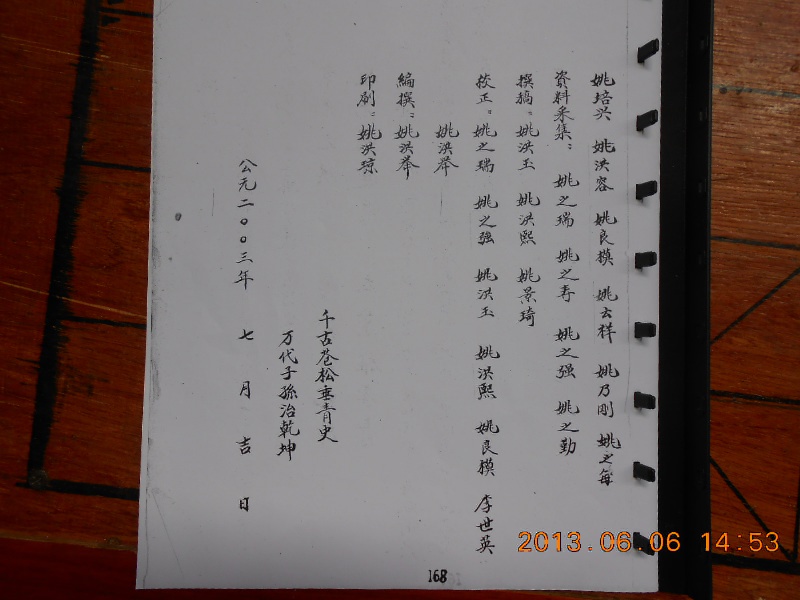 姚培兴 姚洪容 姚良模 姚云祥 姚乃刚 姚之每
资料采集: 姚之瑞 姚之寿 姚之强 姚之勤
撰稿: 姚洪玉 姚洪熙 姚景琦
校正: 姚之瑞 姚之强 姚洪玉 姚洪熙 姚良模 李世英
姚洪举
编撰: 姚洪举
印刷: 姚洪琼
千古苍松垂青史
万代子孫治乾坤
公元二00三年 七月吉日
168
2013.06.06 14:53